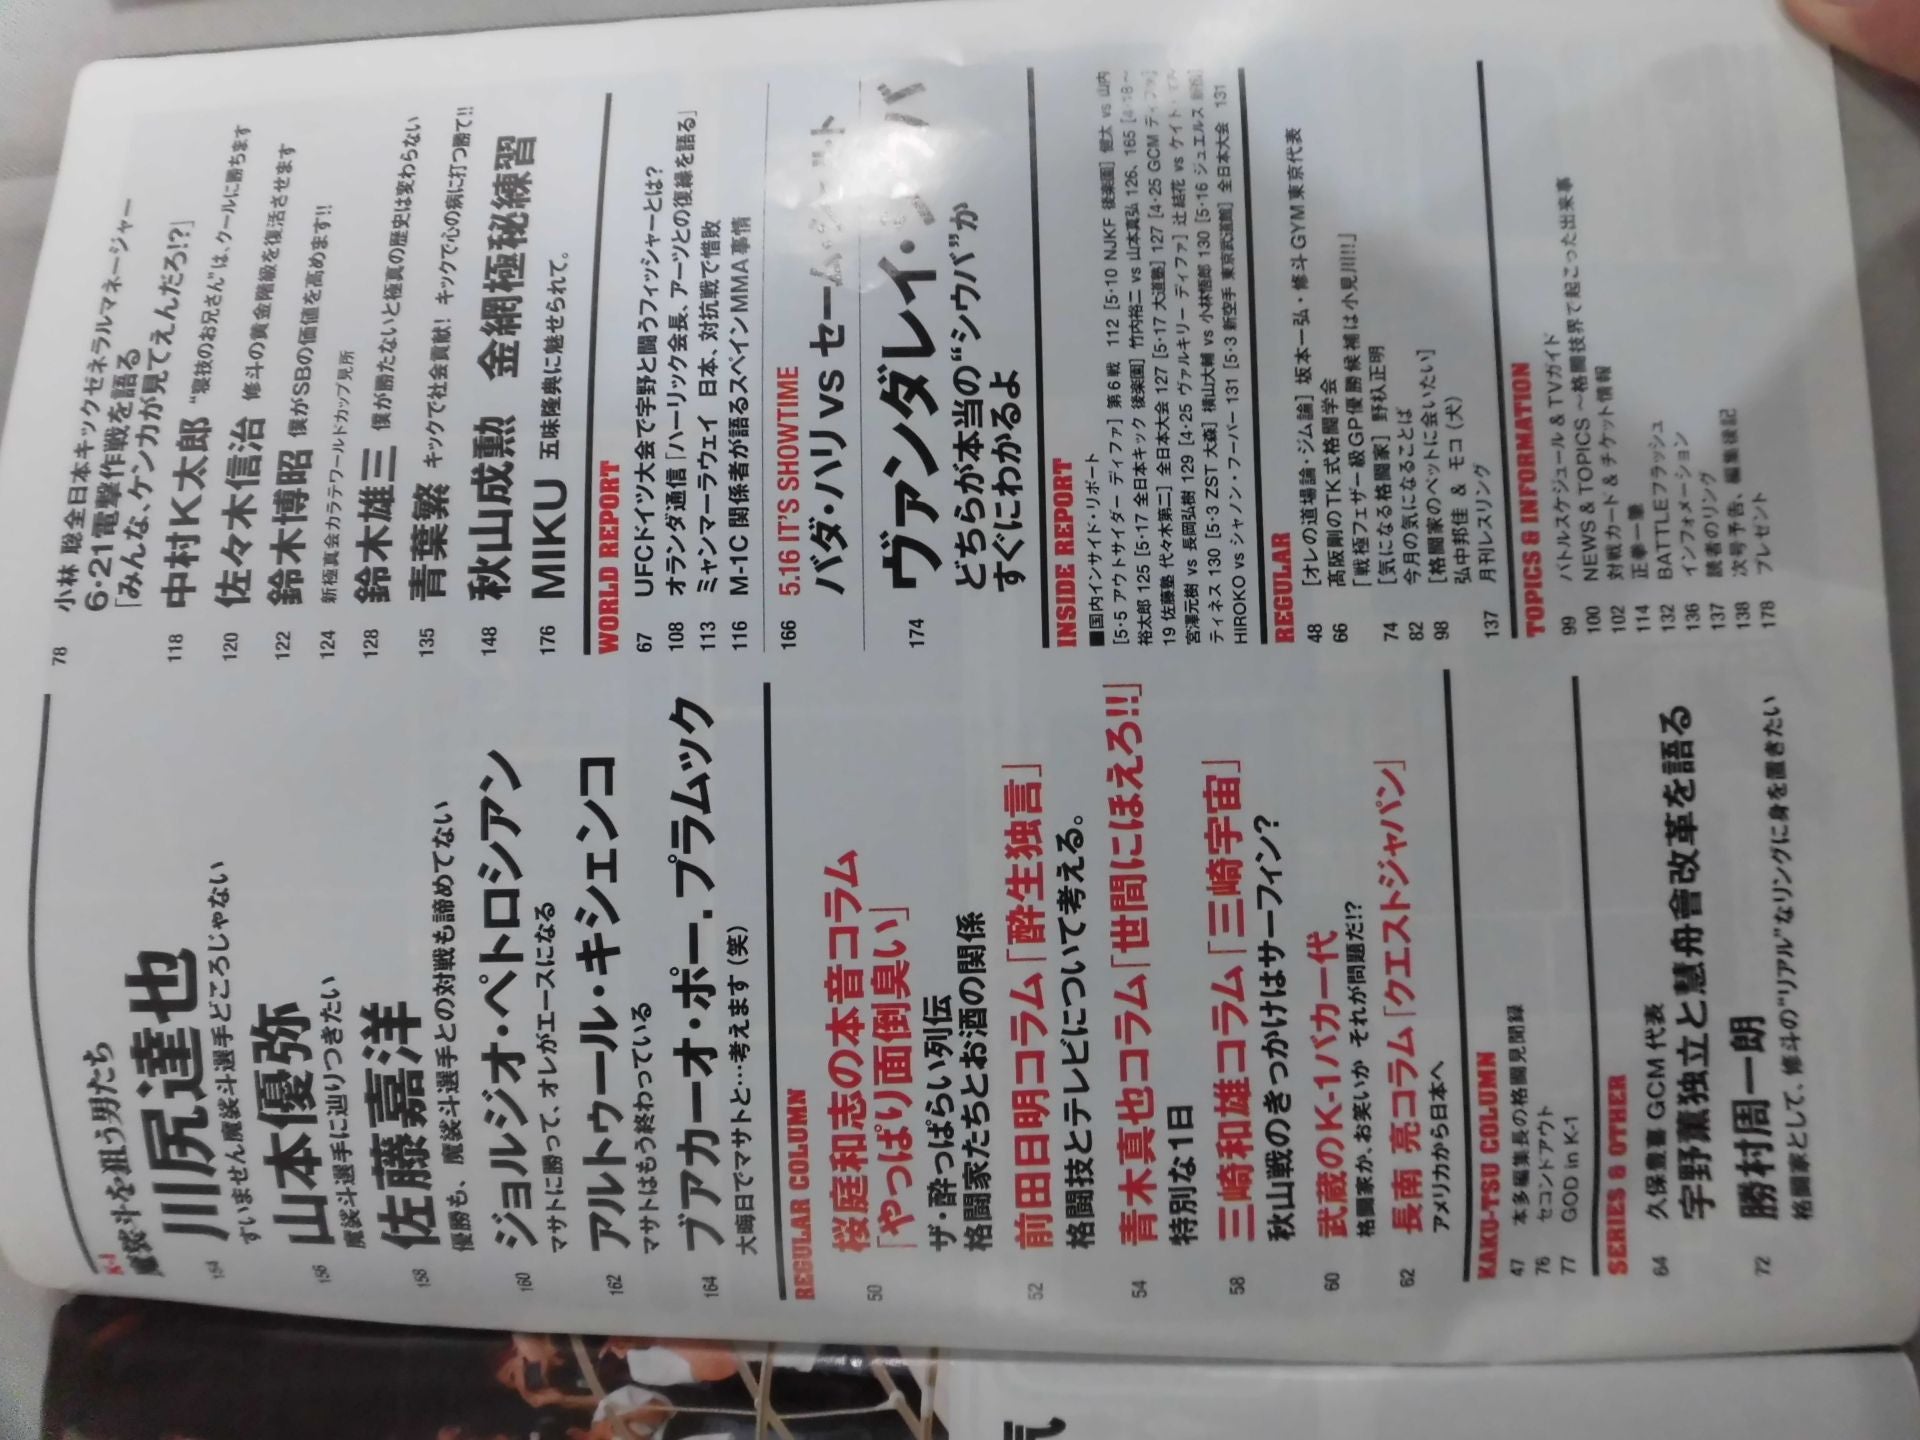 K-1
魔裟斗を狙う男たち
154 川尻達也
すいません魔裟斗選手どころじゃない
156 山本優弥
魔裟斗選手に辿りつきたい
158 佐藤嘉洋
優勝も、魔裟斗選手との対戦も諦めてない
160 ジョルジオ・ペトロシアン
マサトに勝って、オレがエースになる
162 アルトゥール・キシェンコ
マサトはもう終わっている
164 ブアカーオ・ポー. プラムック
大晦日でマサトと…考えます(笑)
REGULAR COLUMN
50 桜庭和志の本音コラム
「やっぱり面倒臭い」
ザ・酔っぱらい列伝
格闘家たちとお酒の関係
52 前田日明コラム「酔生独言」
格闘技とテレビについて考える。
54 青木真也コラム「世間にほえろ!!」
特別な1日
58 三崎和雄コラム「三崎宇宙」
秋山戦のきっかけはサーフィン?
60 武蔵のK-1バカ一代
格闘家か、お笑いか それが問題だ!?
62 長南 亮コラム「クエストジャパン」
アメリカから日本へ
KAKU-TSU COLUMN
47 本多編集長の格闘見聞録
76 セコンドアウト
77 GOD in K-1
SERIES & OTHER
64 久保豊喜 GCM代表
宇野薫独立と慧舟會改革を語る
72 勝村周一朗
格闘家として、修斗の“リアル”なリングに身を置きたい
78 小林 聡全日本キックゼネラルマネージャー
6・21電撃作戦を語る
「みんな、ケンカが見てえんだろ!?」
118 中村K太郎 “寝技のお兄さん”は、クールに勝ちます
120 佐々木信治 修斗の黄金階級を復活させます
122 鈴木博昭 僕がSBの価値を高めます!!
124 新極真会カラテワールドカップ見所
128 鈴木雄三 僕が勝たないと極真の歴史は変わらない
135 青葉繁 キックで社会貢献! キックで心の病に打つ勝て!!
148 秋山成勲 金網極秘練習
176 MIKU 五味隆典に魅せられて。
WORLD REPORT
67 UFCドイツ大会で宇野と闘うフィッシャーとは?
108 オランダ通信「ハーリック会長、アーツとの復縁を語る」
113 ミャンマーラウェイ 日本、対抗戦で惜敗
116 M-1C関係者が語るスペインMMA事情
166 5.16 IT'S SHOWTIME
バダ・ハリ vs セーム・シュルト
174 ヴァンダレイ・シウバ
どちらが本当の“シウバ”か
すぐにわかるよ
INSIDE REPORT
■国内インサイド・リポート
[5・5 アウトサイダー ディファ] 第6戦 112 [5・10 NJKF 後楽園] 健太 vs 山内
裕太郎 125 [5・17 全日本キック 後楽園] 竹内裕二 vs 山本真弘 126、165 [4・18〜
19 佐藤塾 代々木第二] 全日本大会 127 [5・17 大道塾] 127 [4・25 GCM ディファ]
宮澤元樹 vs 長岡弘樹 129 [4・25 ヴァルキリー ディファ] 辻 結花 vs ケイト・
ティネス 130 [5・3 ZST 大森] 横山大輔 vs 小林悟郎 130 [5・16 ジュエルス 新宿]
HIROKO vs シャノン・フーパー 131 [5・3 新空手 東京武道館] 全日本大会 131
REGULAR
48 [オレの道場論・ジム論] 坂本一弘・修斗GYM東京代表
66 髙阪剛のTK式格闘学会
「戦極フェザー級GP優勝候補は小見川!!」
74 [気になる格闘家] 野杁正明
82 今月の気になることば
98 [格闘家のペットに会いたい]
弘中邦佳 & モコ(犬)
137 月刊レスリング
TOPICS & INFORMATION
99 バトルスケジュール & TVガイド
100 NEWS & TOPICS 〜格闘技界で起こった出来事
102 対戦カード & チケット情報
114 正拳一撃
132 BATTLEフラッシュ
136 インフォメーション
137 読者のリング
138 次号予告、編集後記
178 プレゼント